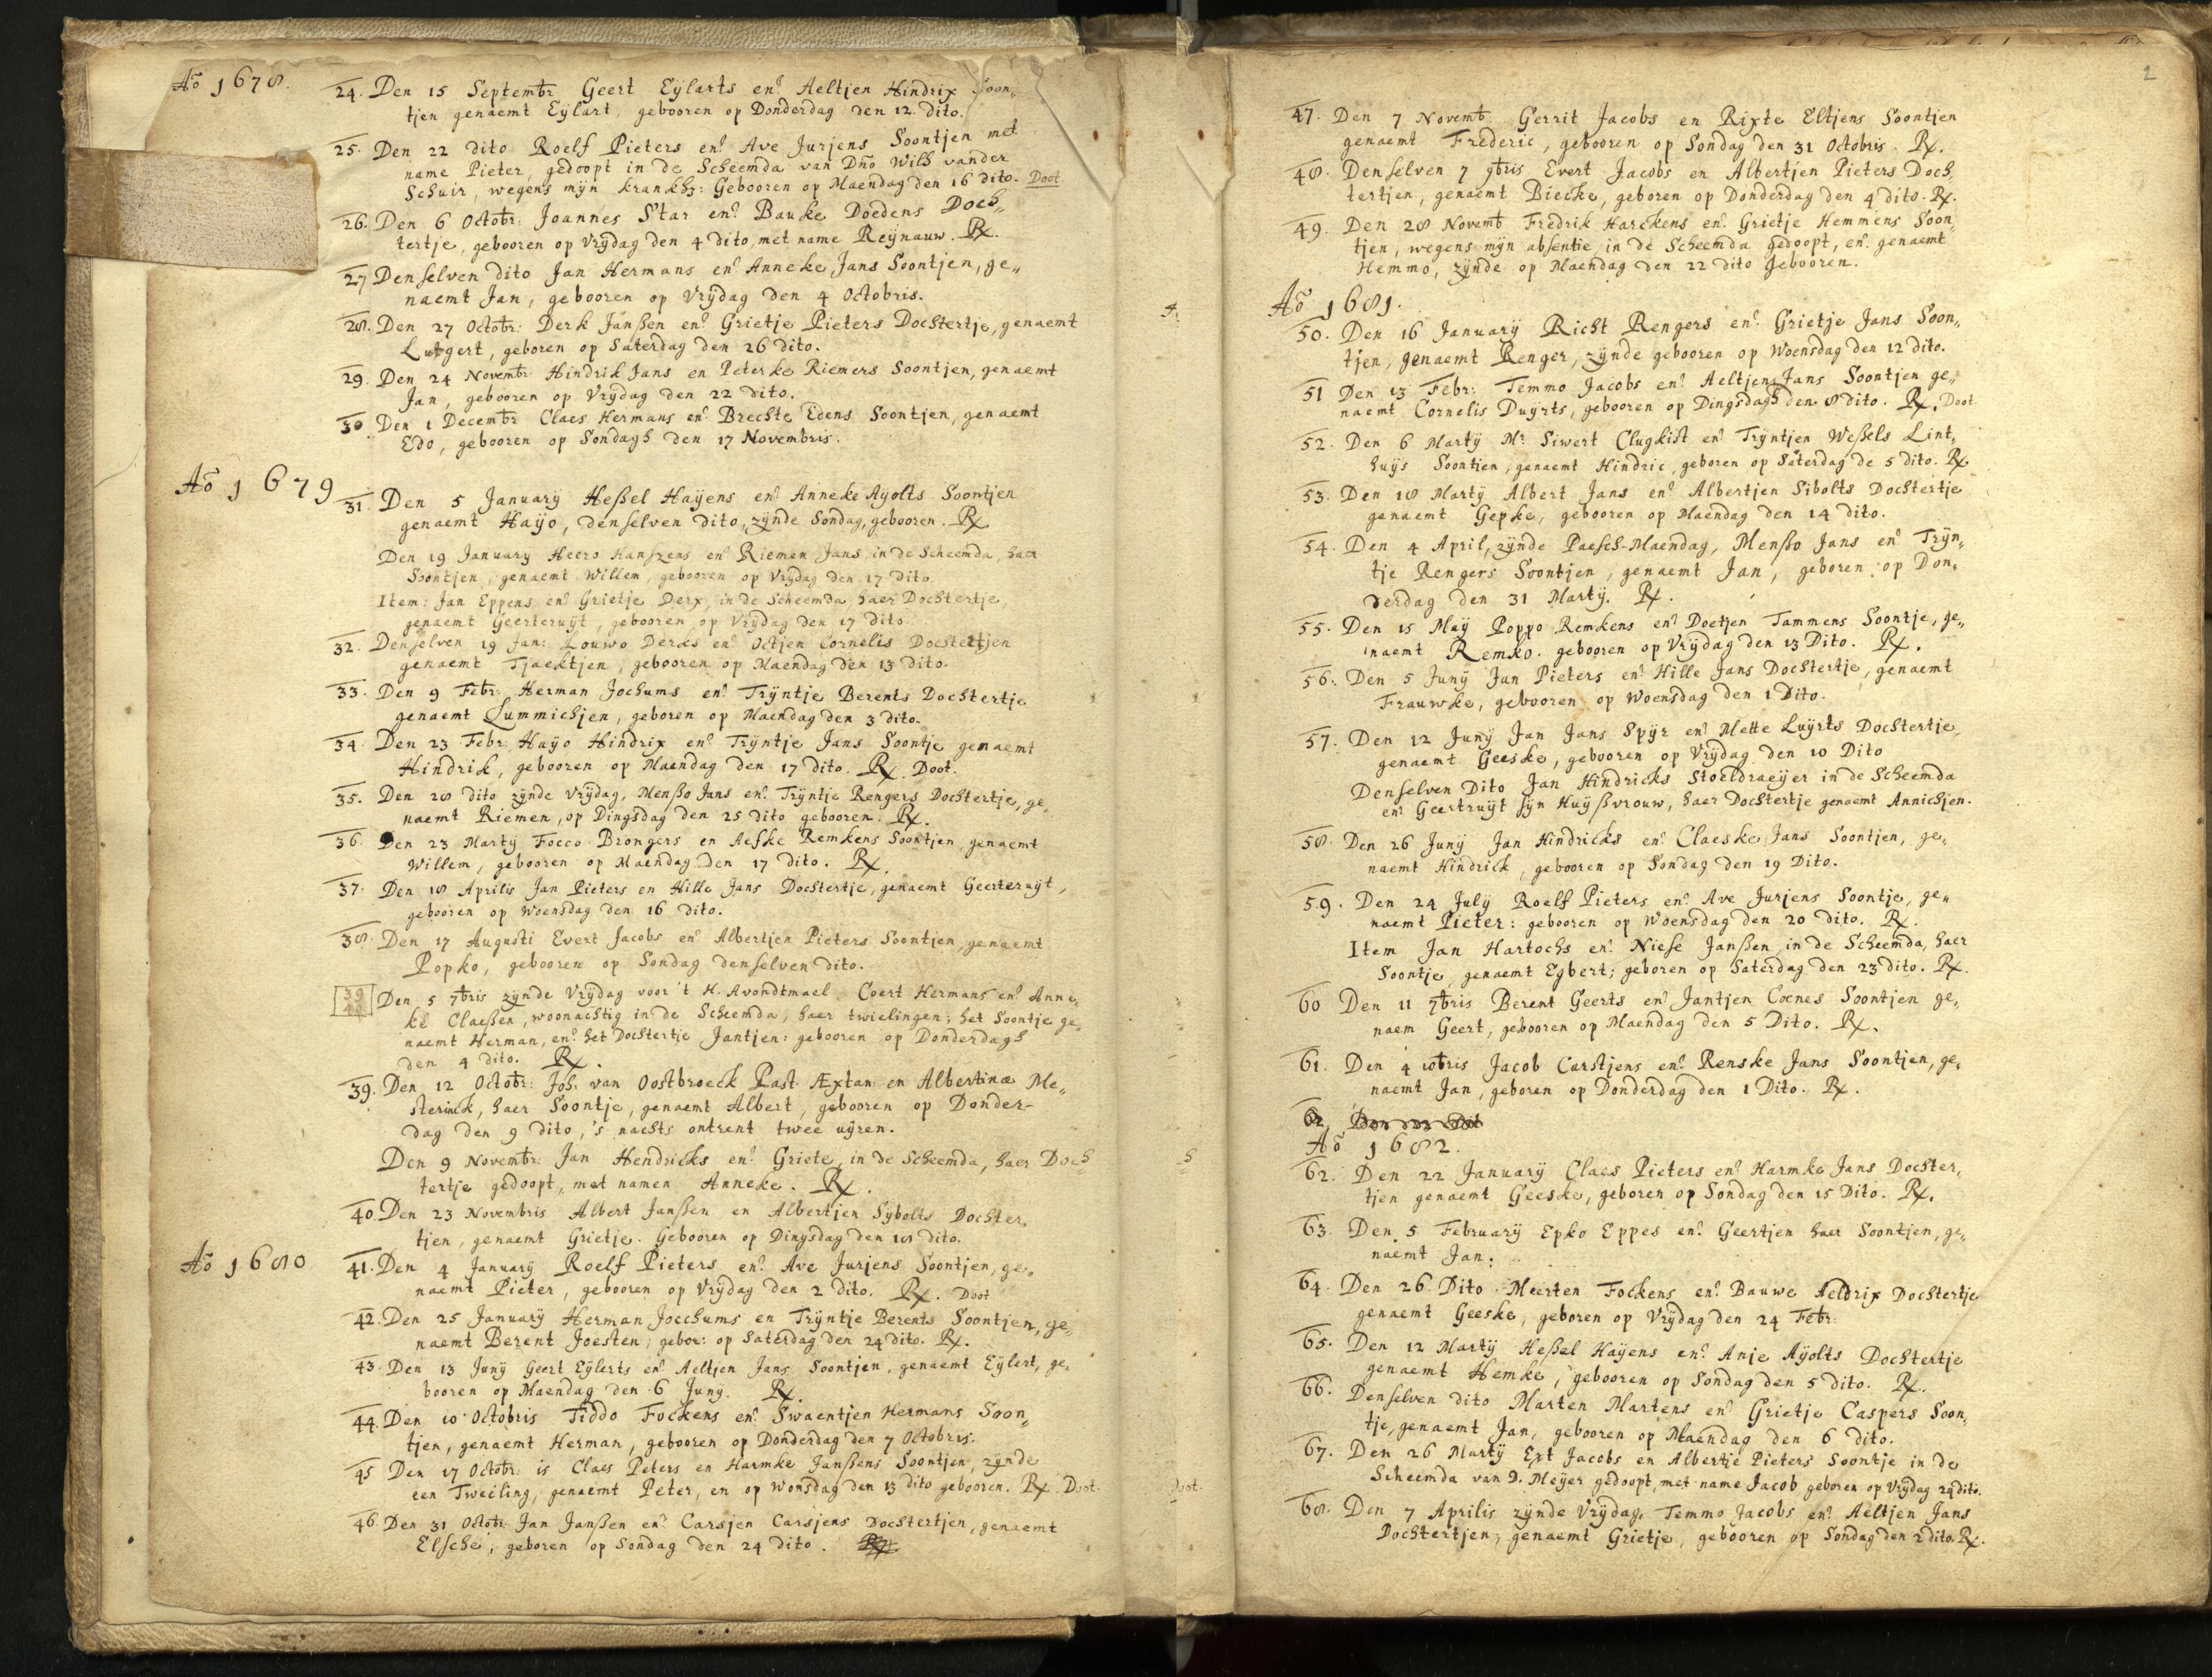 Aõ 1678.
24. Den 15 Septembr Geert Eÿlarts en Aeltjen Hindrix Soon„
tjen genaemt Eÿlart, gebooren op Donderdag den 12 dito.
25. Den 22 dito Roelf Pieters en Ave Jurjens Soontjen met
name Pieter, gedoopt in de Scheemda van Dño Wilh vander
Schuir, wegens mÿn krankh: Gebooren op Maendag den 16 dito. Doot
26. Den 6 Octobr: Joannes Star en Bauke Doedens Doch„
tertje, gebooren op Vrÿdag den 4 dito, met name Reÿnauw. Rx.
27 Denselven dito Jan Hermans en Anneke Jans Soontjen, ge„
naemt Jan, gebooren op Vrÿdag den 4 Octobris.
28. Den 27 Octobr: Derk Janßen en Grietje Pieters Dochtertje, genaemt
Lutgert, geboren op Saterdag den 26 dito.
29. Den 24 Novembr Hindrik Jans en Peterke Riemers Soontjen, genaemt
Jan, gebooren op Vrÿdag den 22 dito.
30 Den 1 Decembr Claes Hermans en Brechte Edens Soontjen, genaemt
Edo, gebooren op Sondagh den 17 Novembris.
Aõ 1679
31. Den 5 Januarÿ Heßel Haÿens en Anneke Aÿolts Soontjen
genaemt Haÿo, denselven dito, zÿnde Sondag, gebooren. Rx
Den 19 January Heero Hanszens en Riemen Jans in de Scheemda, haer
Soontjen, genaemt Willem, gebooren op Vrÿdag den 17 dito.
Item: Jan Eppens en Grietje Derx, in de Scheemda, haer Dochtertje,
genaemt Geerteruÿt, gebooren op Vrÿdag den 17 dito.
32. Denselven 19 Jan: Louwo Dercks en Octjen Cornelis Dochtertjen
genaemt Tjacktjen, gebooren op Maendag den 13 dito.
33. Den 9 Febr: Herman Jochums en Trÿntje Berents Dochtertje
genaemt Lummichjen, geboren op Maendag den 3 dito.
34. Den 23 Febr: Haÿo Hindrix en Trÿntje Jans Soontje genaemt
Hindrik, gebooren op Maendag den 17 dito. Rx. Doot.
35. Den 28 dito zÿnde Vrÿdag, Menßo Jans en Trÿntje Rengers Dochtertje, ge„
naemt Riemen, op Dingsdag den 25 dito gebooren. Rx.
36. Den 23 Martÿ Focco Brongers en Aefke Remkens Soontjen, genaemt
Willem, gebooren op Maendag den 17 dito. Rx.
37. Den 18 Aprilis Jan Pieters en Hille Jans Dochtertje, genaemt Geerteruÿt,
gebooren op Woensdag den 16 dito.
38. Den 17 Augusti Evert Jacobs en Albertjen Pieters Soontjen, genaemt
Popko, gebooren op Sondag denselven dito.
39 40 Den 5 7bris zÿnde Vrÿdag voor 't H. Avondtmael Coert Hermans en Anne„
ke Claeßen, woonachtig in de Scheemda, haer twielingen; het Soontje ge„
naemt Herman, en het Dochtertje Jantjen: gebooren op Donderdagh
den 4 dito. Rx.
39. Den 12 Octobr: Joh. van Oostbroeck Past. Æxtan: en Albertinæ Me„
sterinck, haer Soontje, genaemt Albert, gebooren op Donder-
dag den 9 dito, 's nachts ontrent twee uÿren.
Den 9 Novembr: Jan Hendricks en Griete, in de Scheemda, haer Doch„
tertje gedoopt, met namen Anneke. Rx.
40. Den 23 Novembris Albert Janßen en Albertjen Sÿbolts Dochter„
tjen, genaemt Grietje. Gebooren op Dingsdag den 18 dito.
Aõ 1680
41. Den 4 Januarÿ Roelf Pieters en Ave Jurjens Soontjen, ge„
naemt Pieter, gebooren op Vrÿdag den 2 dito. Rx. Doot
42. Den 25 Januarÿ Herman Jocchums en Trÿntje Berents Soontjen, ge„
naemt Berent Joesten, gebor: op Saterdag den 24 dito. Rx.
43. Den 13 Junÿ Geert Eÿlerts en Aeltjen Jans Soontjen, genaemt Eÿlert, ge„
booren op Maendag den 6 Junÿ. Rx.
44. Den 10 Octobris Tiddo Fockens en Swaentjen Hermans Soon„
tjen, genaemt Herman, gebooren op Donderdag den 7 Octobris.
45 Den 17 Octobr: is Claes Peters en Harmke Janßens Soontjen, zÿnde
een Tweeling, genaemt Peter, en op Wonsdag den 13 dito gebooren. Rx. Doot.
46. Den 31 Octobr. Jan Janßen en Carsjen Carsjens Dochtertjen, genaemt
Elsche, geboren op Sondag den 24 dito.
2
47. Den 7 Novemb. Gerrit Jacobs en Rixte Eltjens Soontjen
genaemt Frederic, gebooren op Sondag den 31 Octobris. Rx.
48. Denselven 7 9bris Evert Jacobs en Albertjen Pieters Doch„
tertjen, genaemt Biecke, geboren op Donderdag den 4 dito. Rx.
49. Den 28 Novemb Fredrik Harckens en Grietje Hemmens Soon„
tjen, wegens mÿn absentie, in de Scheemda gedoopt, en genaemt
Hemmo, zÿnde op Maendag den 22 dito gebooren.
Aõ 1681.
50. Den 16 Januarÿ Richt Rengers en Grietje Jans Soon„
tjen, genaemt Renger, zÿnde gebooren op Woensdag den 12 dito.
51 Den 13 Febr: Temmo Jacobs en Aeltjen Jans Soontjen ge„
naemt Cornelis Duÿrts, gebooren op Dingsdagh den 8 dito. Rx. Doot
52. Den 6 Martÿ Mr Siwert Clugkist en Trÿntjen Weßels Lint„
huÿs Soontien, genaemt Hindric, geboren op Saterdag de 5 dito. Rx
53. Den 18 Martÿ Albert Jans en Albertjen Sibolts Dochtertje
genaemt Gepke, gebooren op Maendag den 14 dito.
54. Den 4 April, zÿnde Paesch-Maendag, Menßo Jans en Trÿn„
tje Rengers Soontjen, genaemt Jan, geboren op Don„
derdag den 31 Martÿ. Rx.
55. Den 15 Maÿ Poppo Remkens en Doetjen Tammens Soontje, ge„
naemt Remko. gebooren op Vrÿdag den 13 Dito. Rx.
56. Den 5 Junÿ Jan Pieters en Hille Jans Dochtertje, genaemt
Frauwke, gebooren op Woensdag den 1 Dito.
57. Den 12 Junÿ Jan Jans Spÿr en Mette Luÿrts Dochtertje
genaemt Geeske, gebooren op Vrÿdag den 10 Dito
Denselven Dito Jan Hindricks Stoeldraeÿer in de Scheemda
en Geertruÿt sÿn Huÿßvrouw, haer Dochtertje genaemt Annichjen.
58. Den 26 Junÿ Jan Hindricks en Claeske Jans Soontjen, ge„
naemt Hindrick, gebooren op Sondag den 19 Dito.
59. Den 24 Julÿ Roelf Pieters en Ave Jurjens Soontje, ge„
naemt Pieter: gebooren op Woensdag den 20 dito. Rx.
Item Jan Hartochs en Niese Janßen in de Scheemda, haer
Soontje, genaemt Egbert; geboren op Saterdag den 23 dito. Rx.
60 Den 11 7bris Berent Geerts en Jantjen Coenes Soontjen ge„
naem Geert, gebooren op Maendag den 5 Dito. Rx.
61. Den 4 10bris Jacob Carstjens en Renske Jans Soontjen, ge„
naemt Jan, geboren op Donderdag den 1 Dito. Rx.
62.
Aõ 1682.
62. Den 22 Januarÿ Claes Pieters en Harmke Jans Dochter„
tjen genaemt Geeske, geboren op Sondag den 15 Dito. Rx.
63. Den 5 Februarÿ Epko Eppes en Geertjen haer Soontjen, ge„
naemt Jan.
64. Den 26 Dito Meerten Fockens en Bauwe Aeldrix Dochtertje
genaemt Geeske, geboren op Vrÿdag den 24 Febr:
65. Den 12 Martÿ Heßel Haÿens en Anje Aÿolts Dochtertje
genaemt Hemke, gebooren op Sondag den 5 dito. Rx.
66. Denselven dito Marten Martens en Grietje Caspers Soon„
tje, genaemt Jan, gebooren op Maendag den 6 dito.
67. Den 26 Martÿ Ext Jacobs en Albertje Pieters Soontje in de
Scheemda van D. Meÿer gedoopt, met name Jacob geboren op Vrÿdag 24 dito.
68. Den 7 Aprilis zÿnde Vrÿdag, Temmo Jacobs en Aeltjen Jans
Dochtertjen, genaemt Grietje, gebooren op Sondag den 2 dito. Rx.